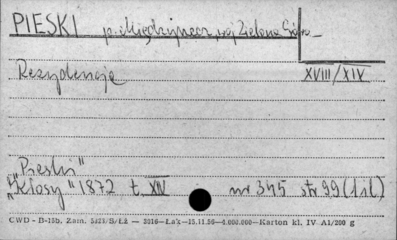 PIESKI p. Międzyrzecz, woj Zielona Góra
Rezydencja XVIII/XIX
"Pieski"
"Kłosy" 1872 t. XIV nr 345 str 99 (1 il)
CWD - B-15b. Zam. 5323/B/Łż — 5016—Łak—15.11.56—4.000.000—Karton kl. IV A1/200 g